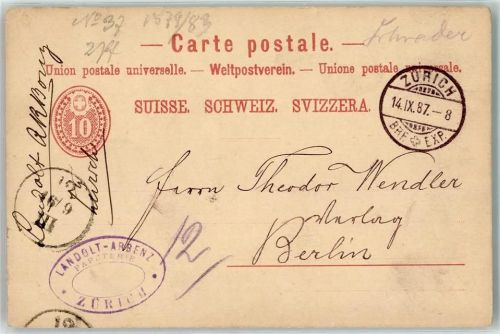 No 37 1879/83
2ff
Schrader
Carte postale.
Union postale universelle. — Weltpostverein. — Unione postale universale.
SUISSE. SCHWEIZ. SVIZZERA.
10
ZÜRICH
14.IX.87.–8
BRF. EXP.
Herrn Theodor Wendler
Verlag
Berlin
12/
LANDOLT-ARBENZ
PAPETERIE
ZÜRICH